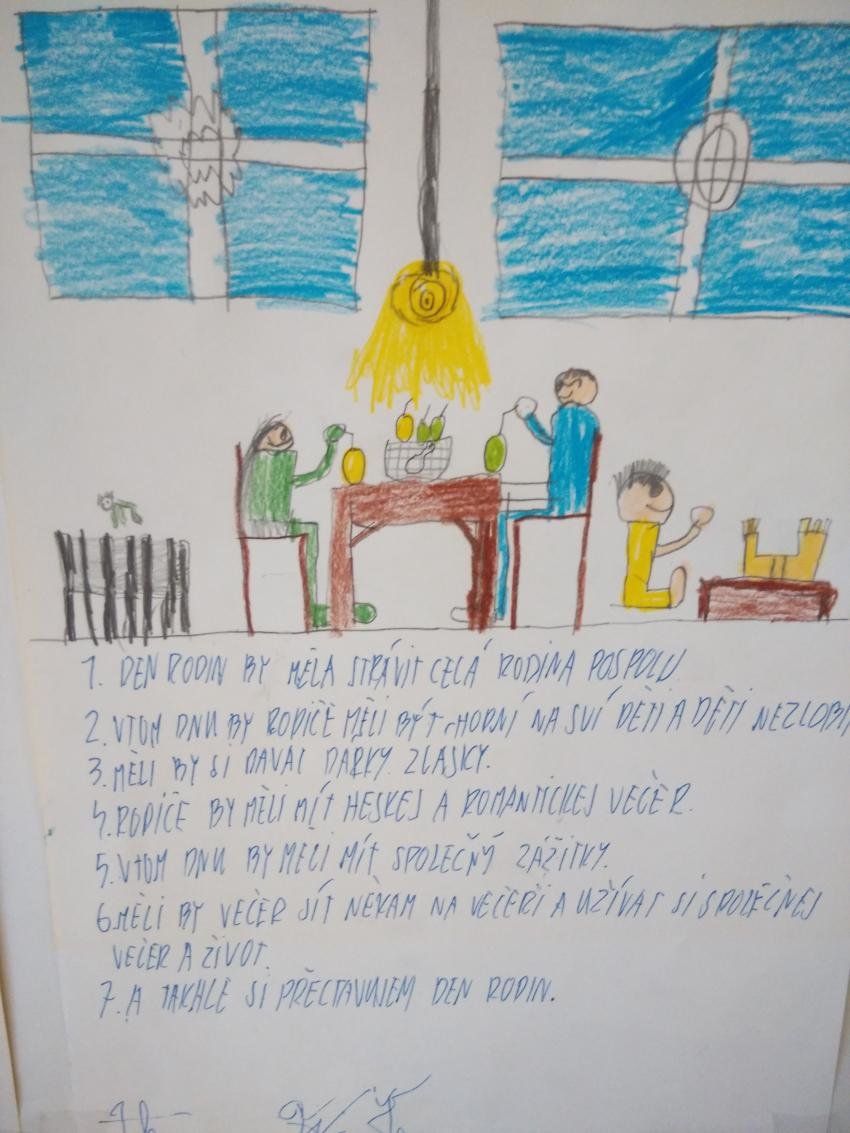 1. DEN RODIN BY MĚLA STRÁVIT CELÁ RODINA POSPOLU
2. VTOM DNU BY RODIČE MĚLI BÝT HODNÍ NA SVÍ DĚTI A DĚTI NEZLOBI
3. MĚLI BY SI DAVAT DARKY ZLASKY.
4. RODIČE BY MĚLI MÍT HESKEJ A ROMANTICKEJ VEČĚR.
5. VTOM DNU BY MĚLI MÍT SPOLEČNÝ ZÁŽITKY.
6. MĚLI BY VEČĚR JÍT NĚKAM NA VEČEŘI A UŽÍVAT SI SPOLEČNEJ
VEČĚR A ŽIVOT.
7. A TAKHLE SI PŘECTAVUJEM DEN RODIN.